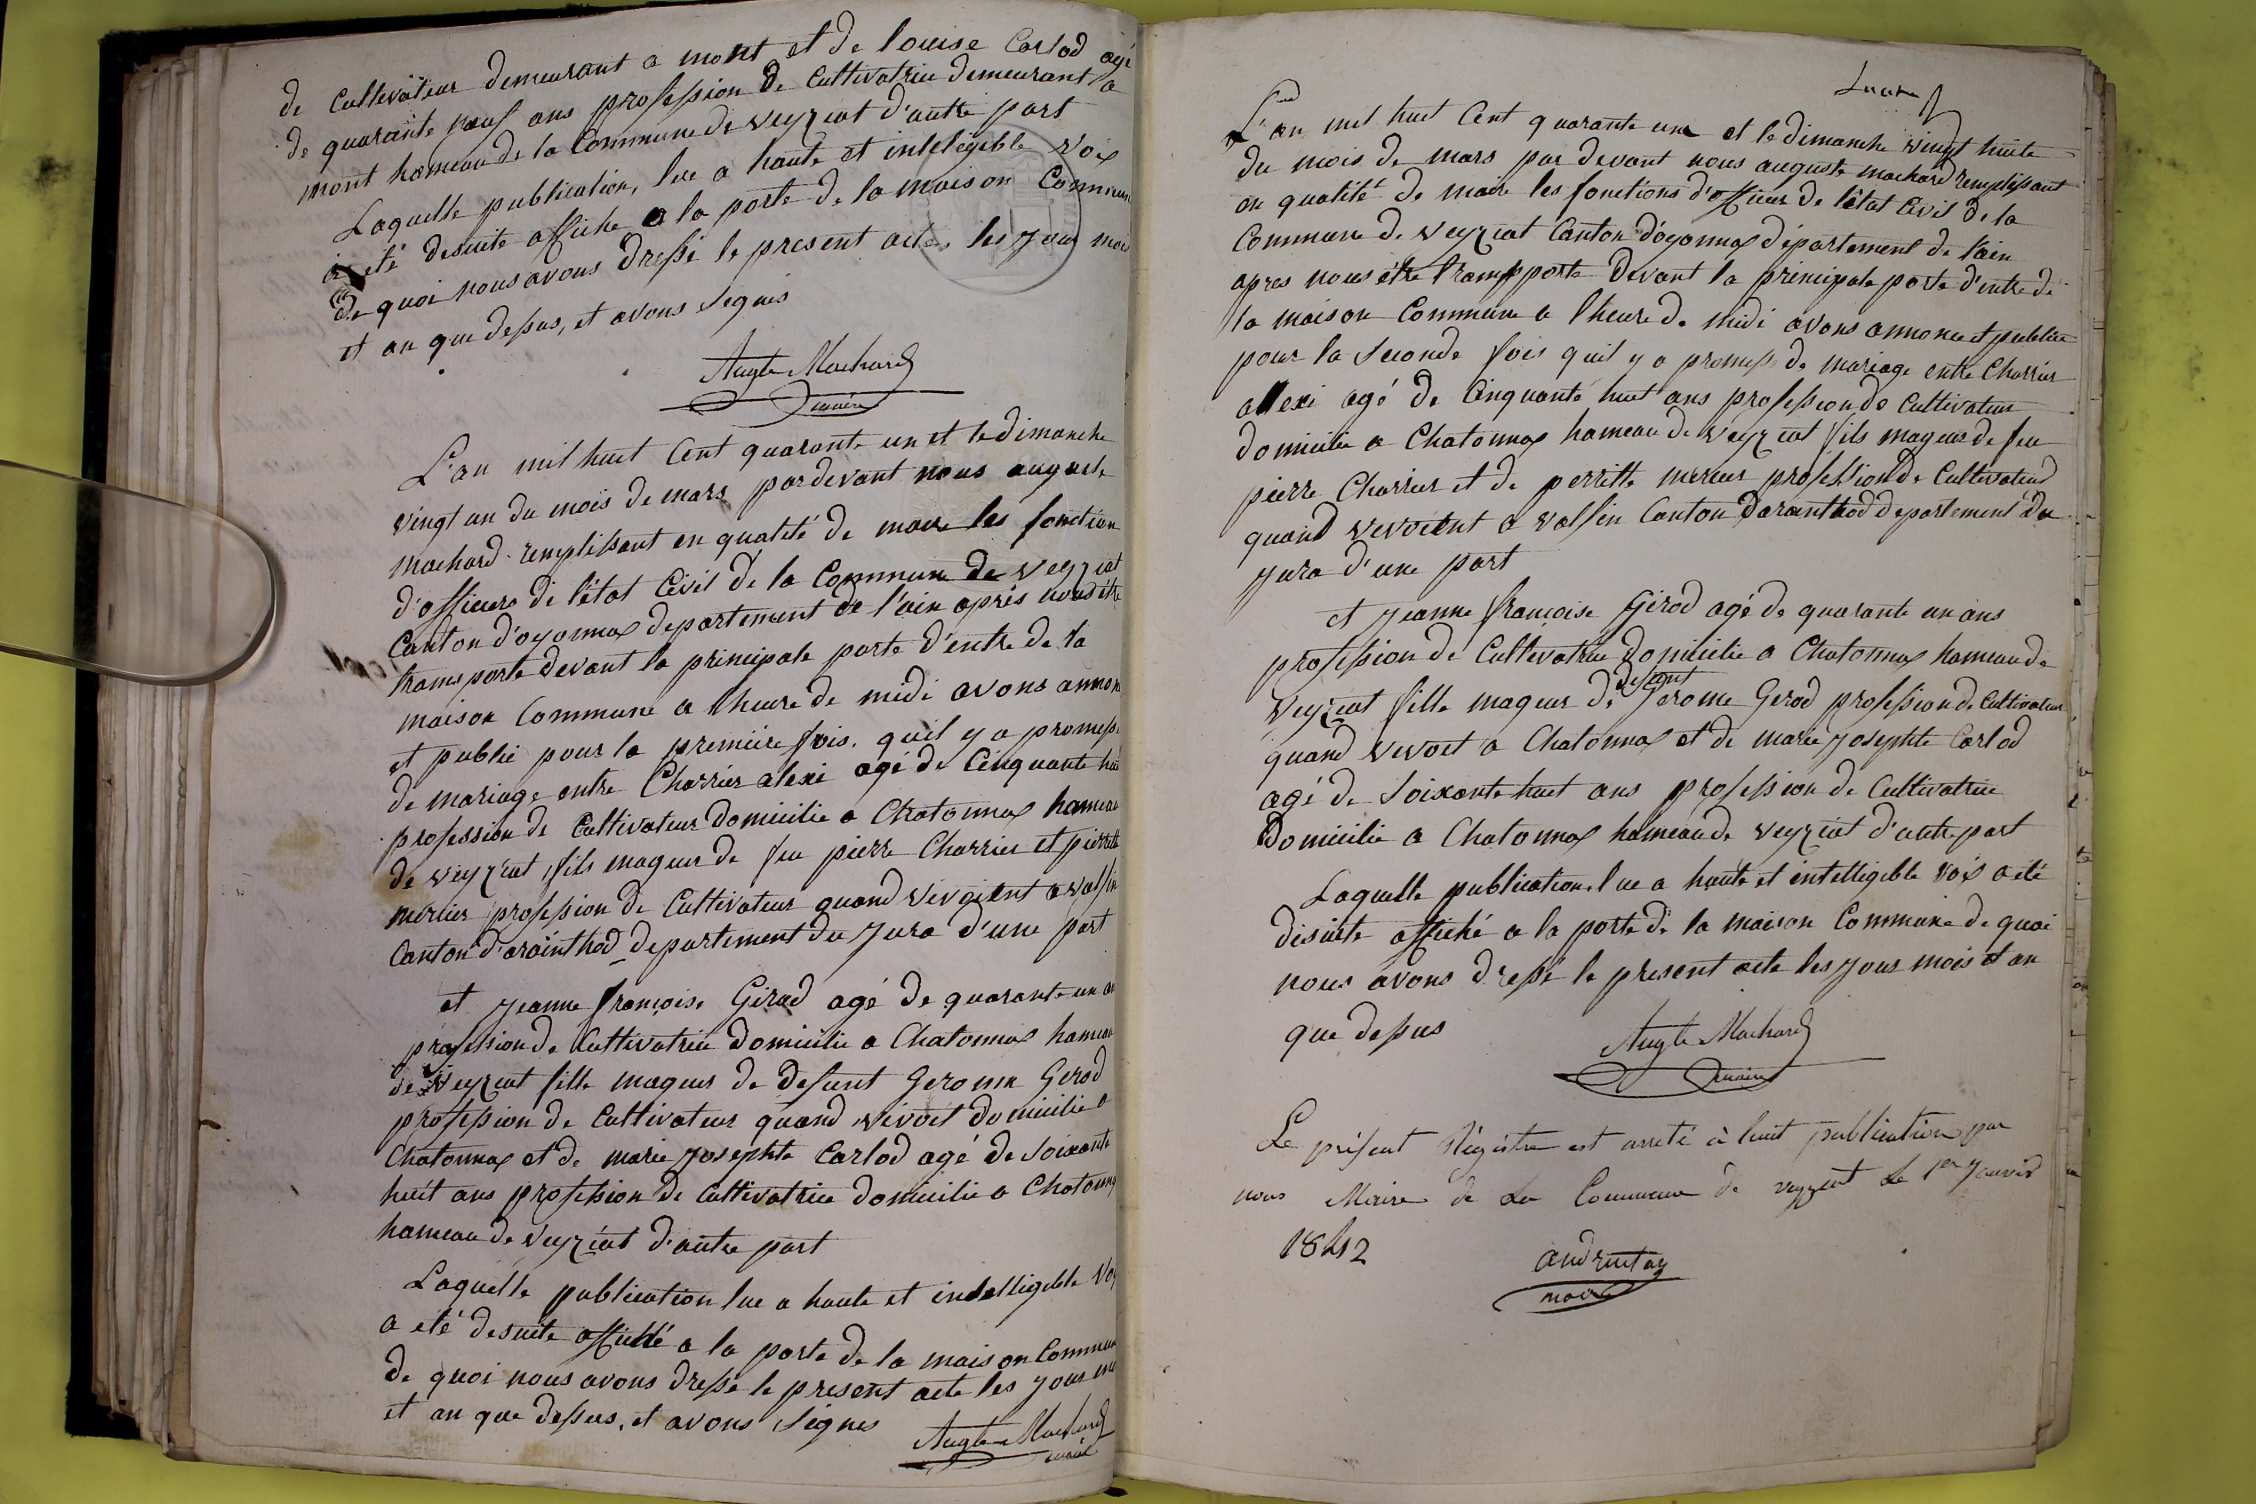 de Cultivateur demeurant a mont et de louise Carlod agé
de quarante neuf ans profession de Cultivatrice demeurant a
mont hameau de la Commune de veyziat d'autre part
Laquelle publication, lue a haute et intelegible voix
a eté desuite affiche a la porte de la maison Commune
de quoi nous avons dressé le present acte, les jour mois
et an que dessus, et avons signés
Augte Machard
maire
L'an mil huit Cent quarante un et le dimanche
vingt un du mois de mars pardevant nous auguste
machard remplissant en qualité de maire les fonction
d'officiers de l'état Civil de la Commune de veyziat
Canton d'oyonnax departement de l'ain après nous être
transporte devant la principale porte d'entre de la
maison Commune a l'heure de midi avons annonc
et publié pour la première fois. qu'il y a promesse
de mariage entre Charrier alexi agé de Cinquante hui
profession de Cultivateur domicilie a Chatonnax hameau
de veyziat, fils mageur de feu pierre Charrier et pierrette
mercier profession de Cultivateur quand vivoient a valfin
Canton d'arainthod departement du Jura d'une part
et jeanne françoise Girod agé de quarante un an
profession de Cultivatrice domicilie a Chatonnax hameau
de veyziat fille mageur de defunt Gerome Gerod
profession de Cultivateur quand vivoit domicilie a
Chatonnax et de marie josephte Carlod agé de soixante
huit ans profession de Cultivatrice domicilie a Chatonnax
hameau de veyziat d'autre part
Laquelle publication lue a haute et intelligible vo
a eté desuite affiché a la porte de la maison Commun
de quoi nous avons dressé le present acte les jour mo
et an que dessus, et avons signes
Augte Machard
maire
L'an mil huit Cent quarante un et le dimanche vingt huite
du mois de mars par devant nous auguste machard remplissant
en qualité de maire les fonctions d'officier de l'état Civil de la
Commune de veyziat Canton d'oyonnax département de l'ain
apres nous être transporte devant la principale porte d'entre de
la maison Commune a l'heure de midi avons annonce et publiée
pour la seconde fois qu'il y a promesse de mariage entre Charrier
alexi agé de Cinquante huit ans profession de Cultivateur
domicilie a Chatonnax hameau de veyziat fils mageur de feu
pierre Charrier et de perrette mercier profession de Cultivateur
quand vivoient a valfin Canton Daranthod departement du
jura d'une part
et jeanne françoise Girod agé de quarante un ans
profession de Cultivatrice domicilie a Chatonnax hameau de
veyziat fille mageur de defunt Gerome Gerod profession de Cultivateur
quand vivoit a Chatonnax et de marie josephte Carlod
agé de soixante huit ans profession de Cultivatrice
Domicilie a Chatonnax hameau de veyziat d'autre part
Laquelle publication lue a haute et intelligible voix a eté
desuite affiché a la porte de la maison Commune de quoi
nous avons dressé le present acte les jour mois et an
que dessus
Augte Machard
maire
Le présent Régistre est arreté à huit publication par
nous Maire de la Commune de veyziat le 1er Janvier
1842
maire